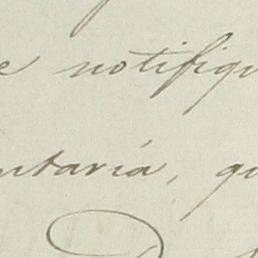 e notifiqu
ntaria, qu